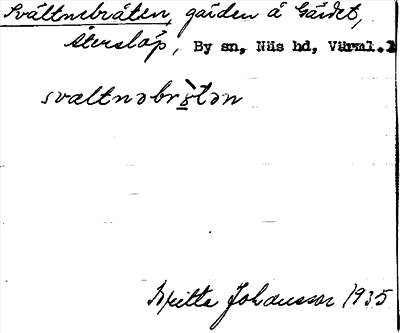 Svältnebråten, gården å Gärdet,
Återslöp, By sn, Näs hd, Värml.l
svæltnəbrò̱tən
Britta Johansson 1935